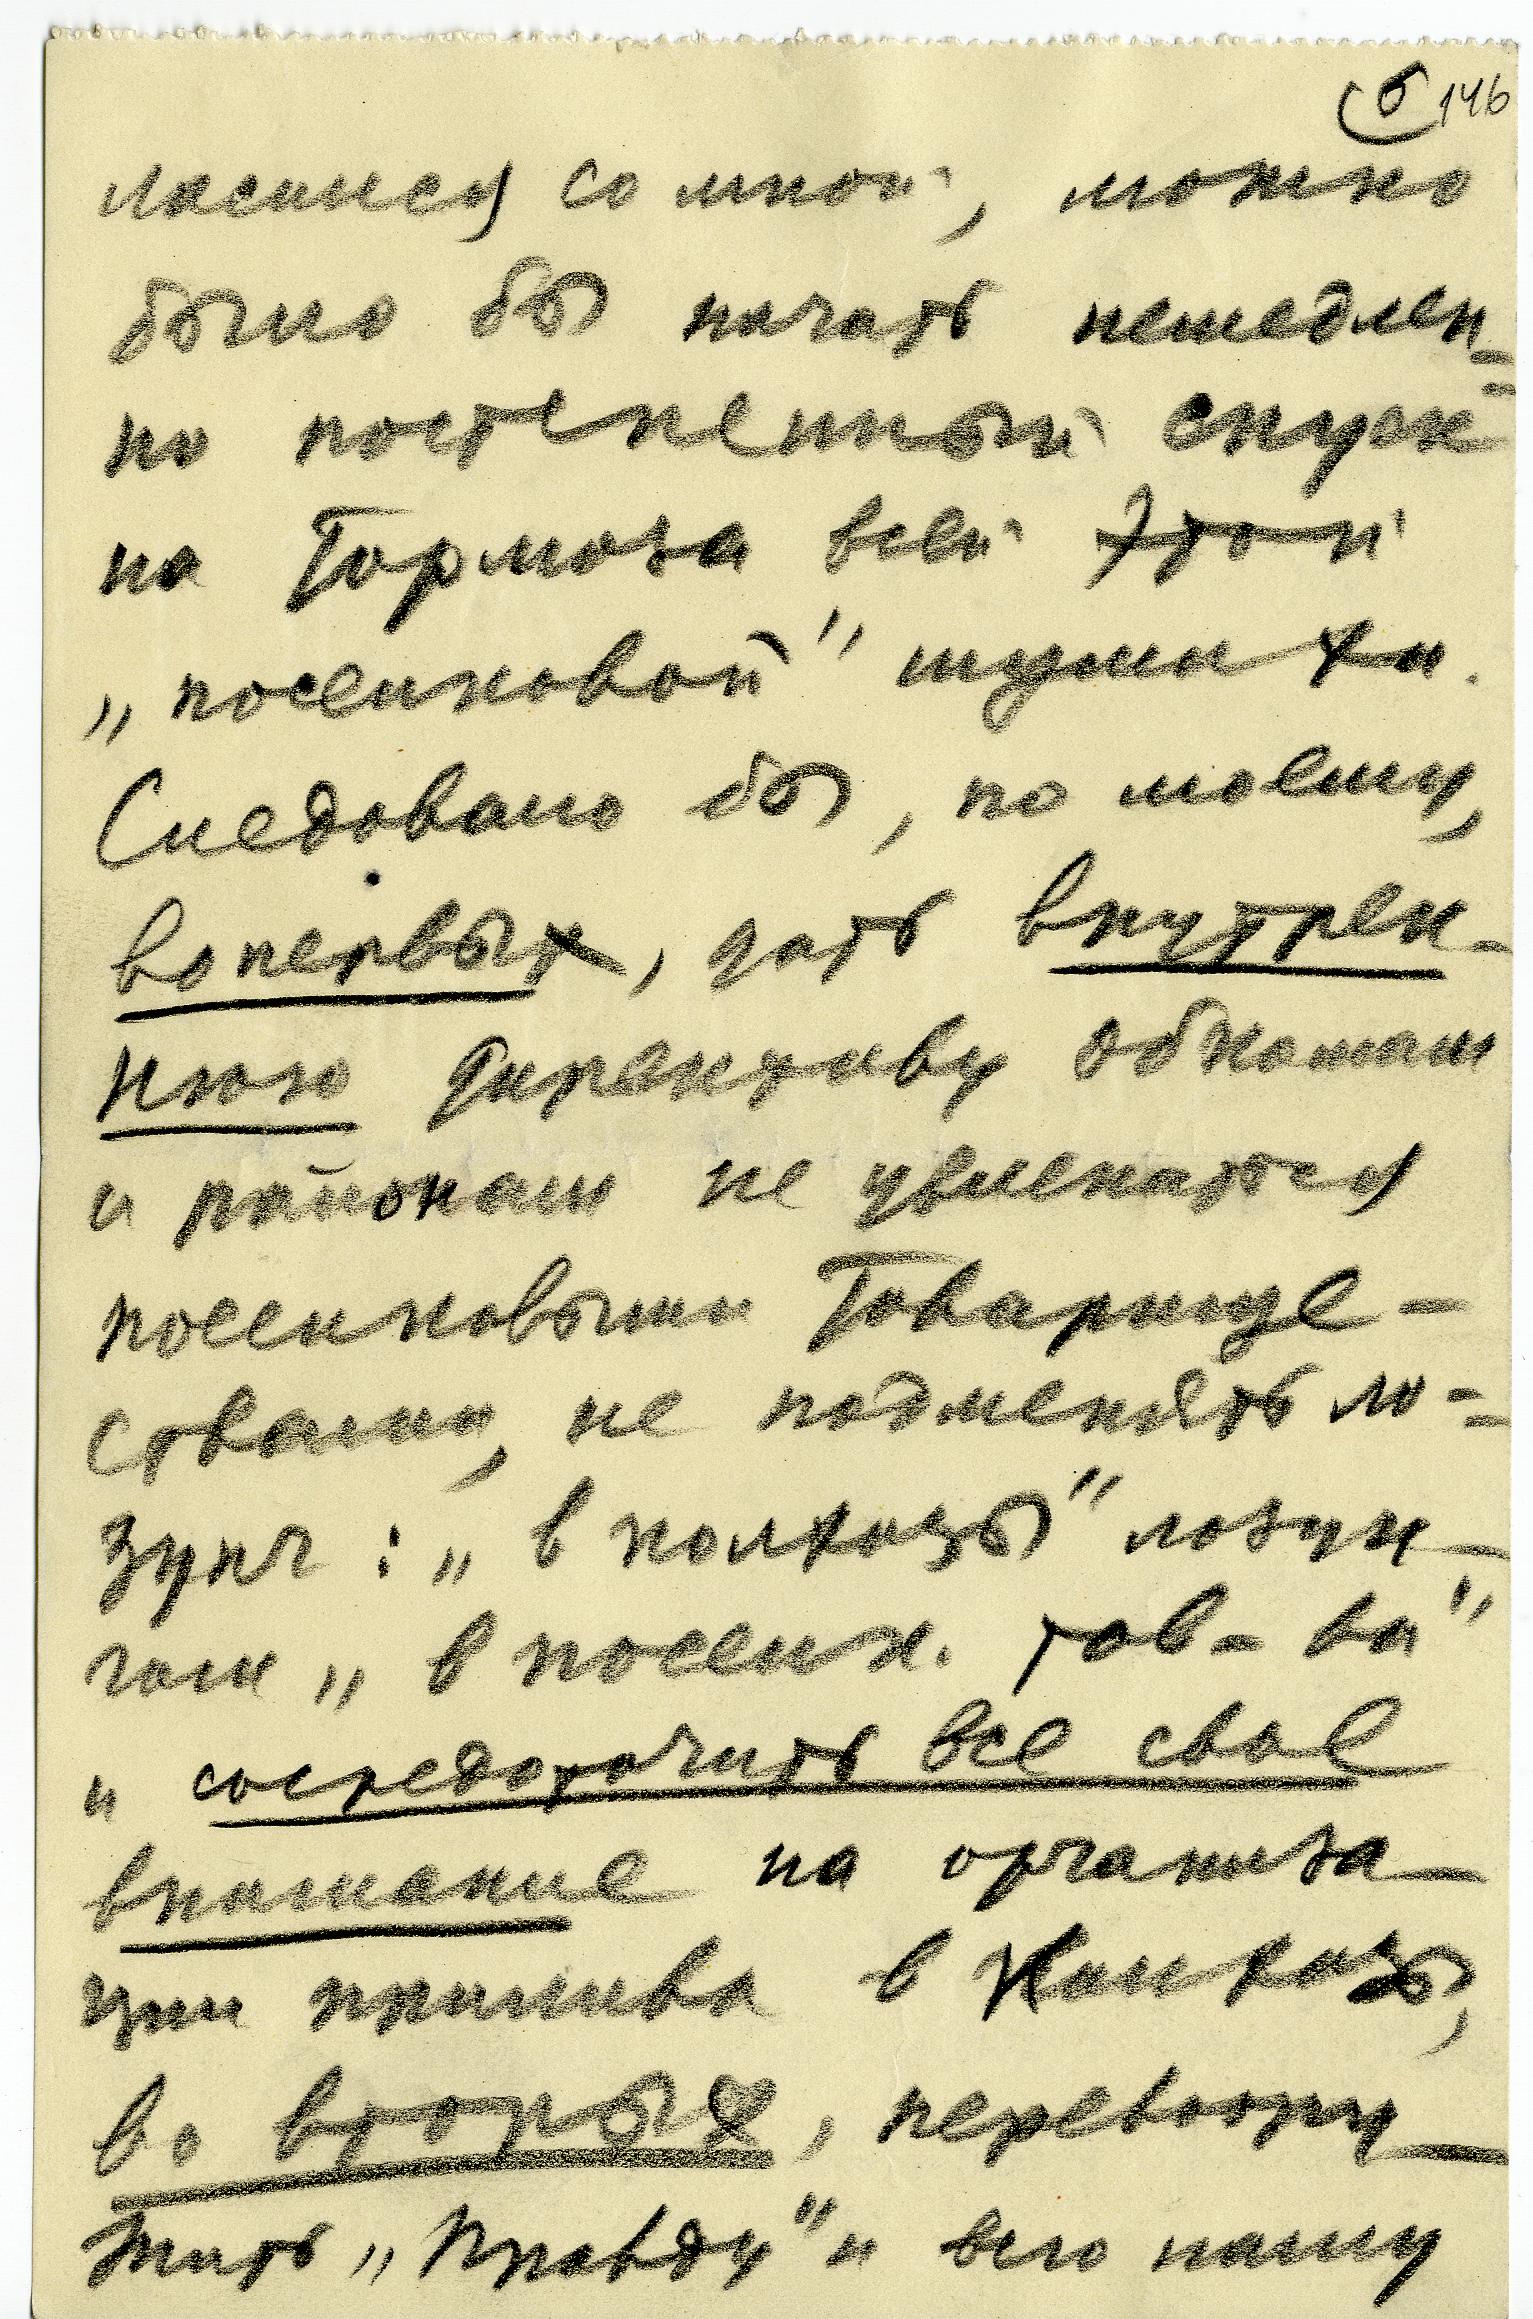 5 146
ласился со мной, можно
было бы начать немедлен-
но постепенный спуск
на тормоза всей этой
„поселковой" шумихи.
Следовало бы, по моему,
во первых, дать внутрен-
нюю директиву обкомам
и районам не увлекаться
поселковыми товарище-
ствами, не подменять ло-
зунг: „в колхозы" лозун-
гом „в поселк. тов-ва"
и сосредоточить все свое
внимание на организа-
ции прилива в колхозы,
во вторых, перевоору-
жить „Правду" и всю нашу